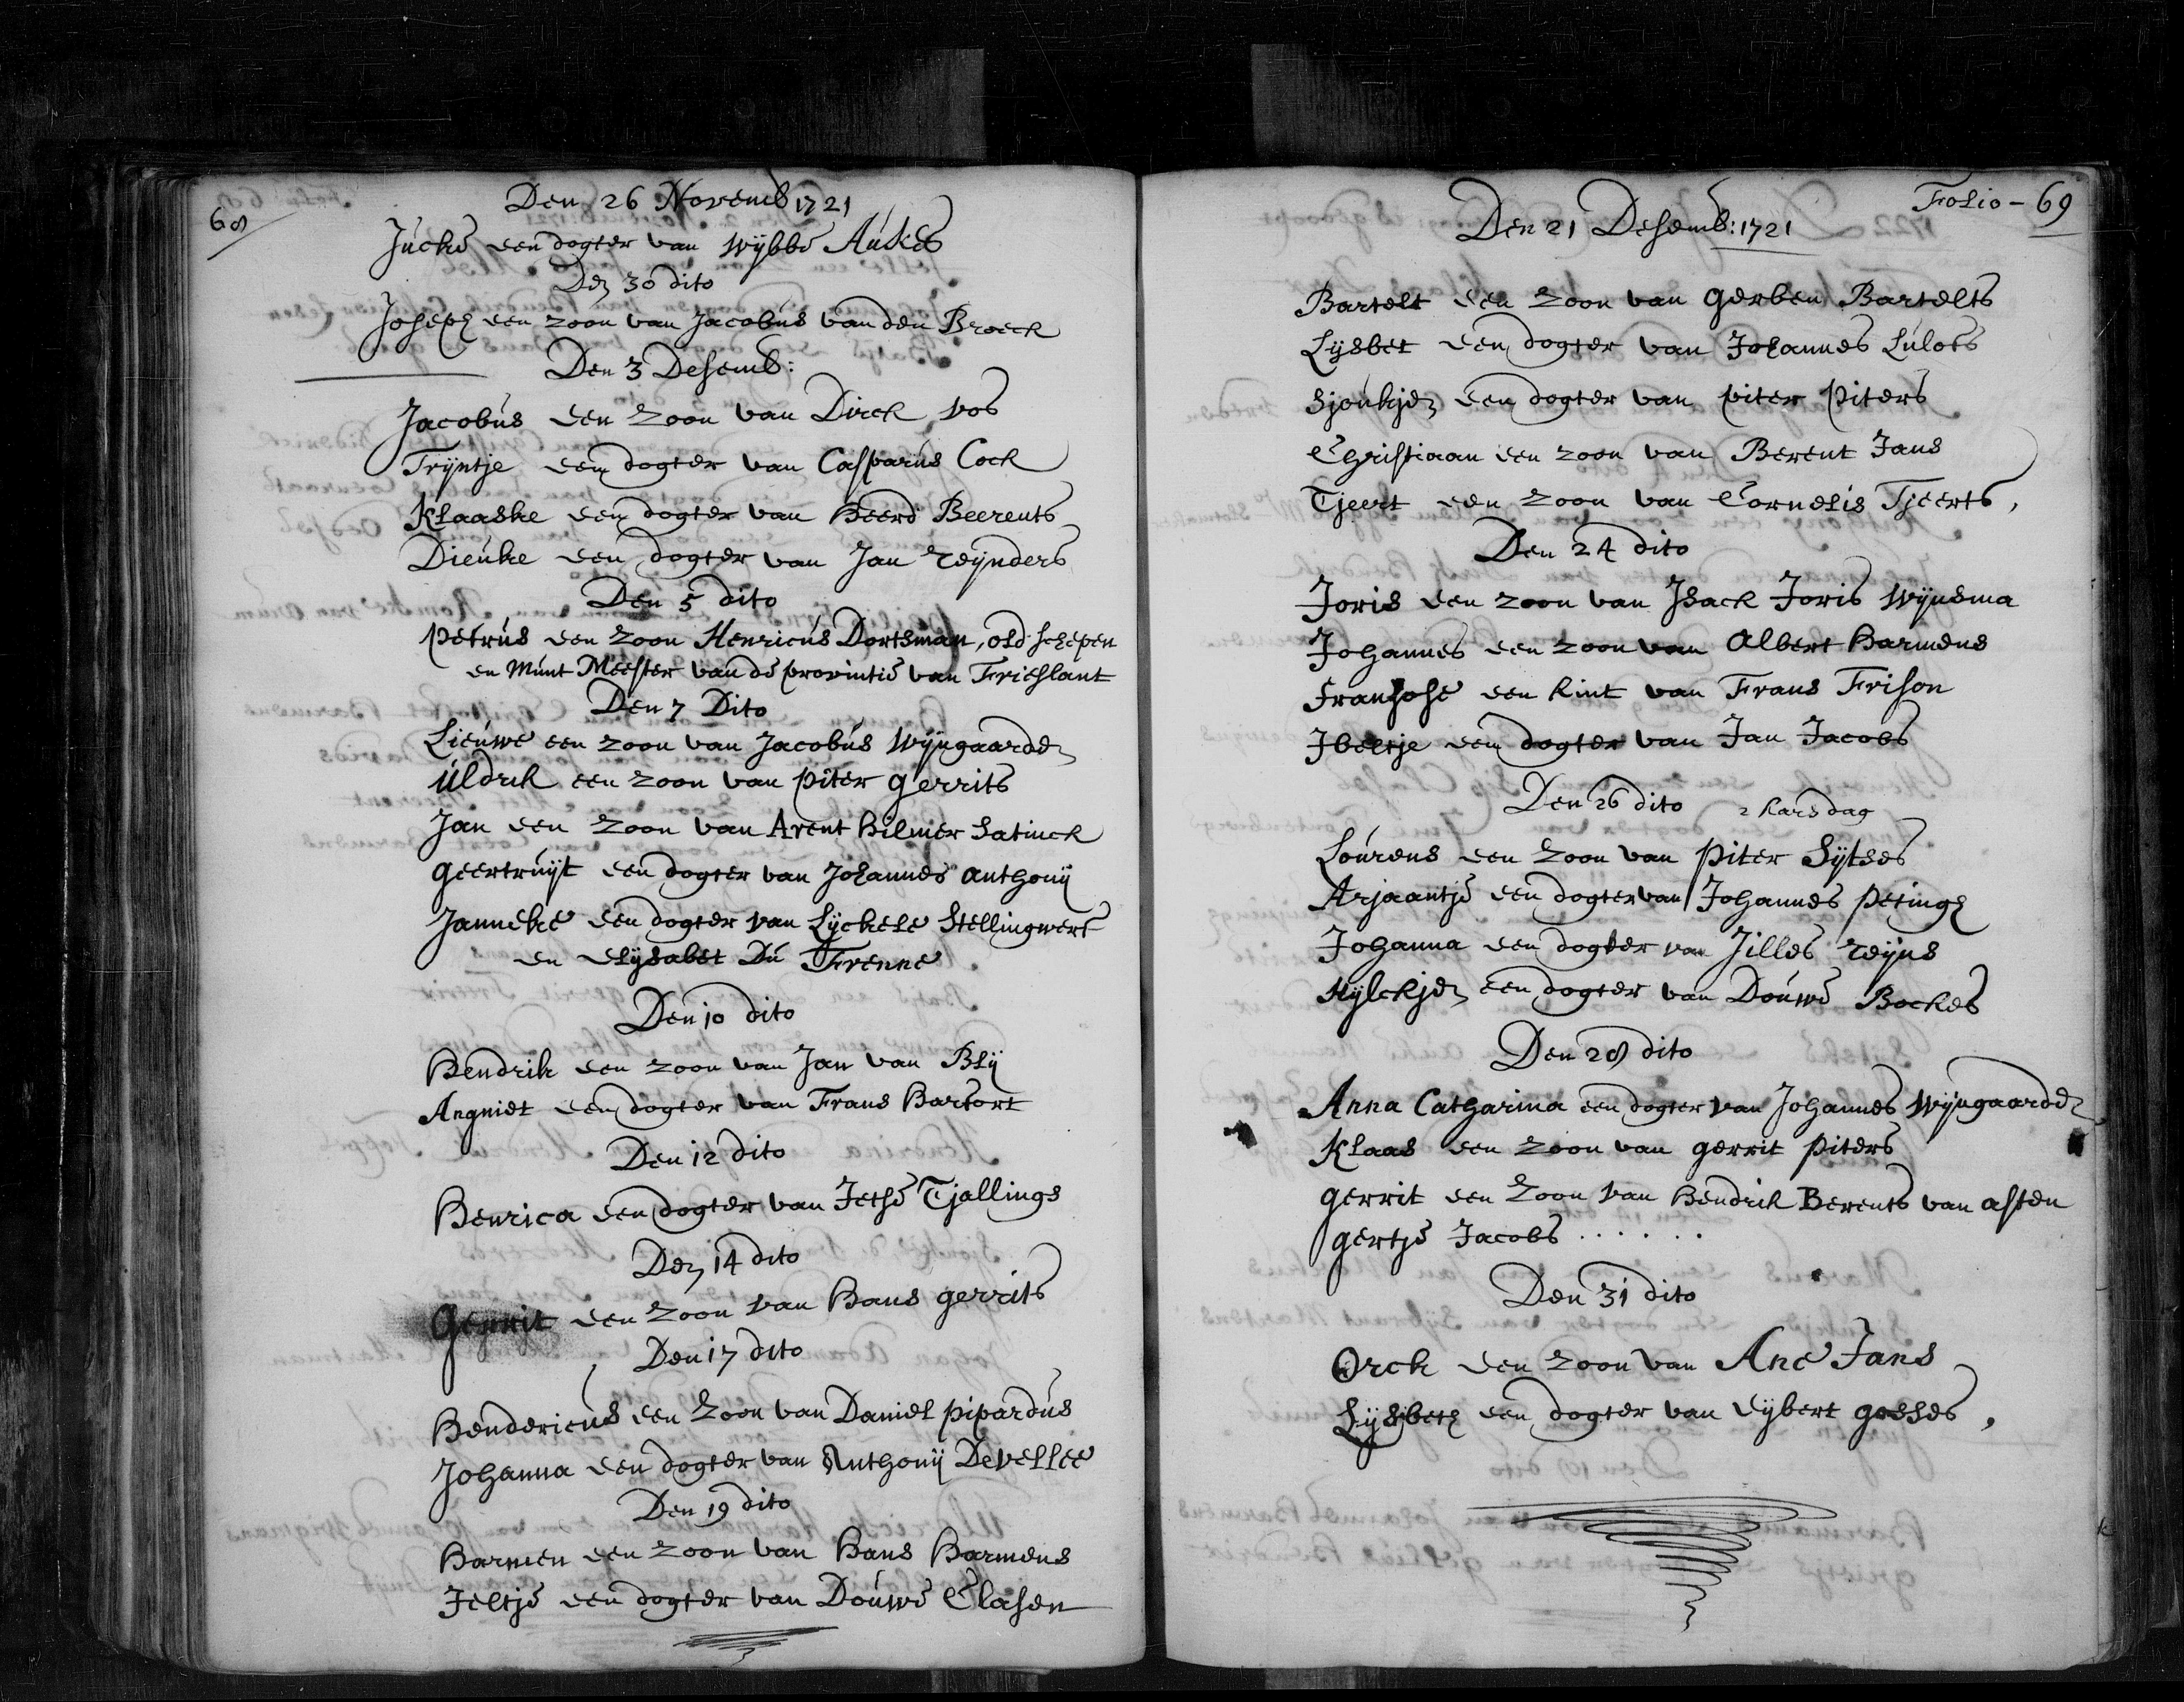 68
Den 26 Novemb 1721
Jucke een dogter van Wybbe Aukes
Den 30 dito
Joseph een zoon van Jacobus van den Broeck
Den 3 Desemb:
Jacobus een zoon van Dirck Vos
Tryntje een dogter van Casparus Cock
Klaaske een dogter van Heerd Beerents
Dieuke een dogter van Jan Reynders
Den 5 dito
Petrus een zoon Henricus Dortsman, old schepen
en Munt Meester van de provintie van Frieslant
Den 7 Dito
Lieuwe een zoon van Jacobus Wyngaarden
Uldrik een zoon van Piter Gerrits
Jan een zoon van Arent Hilmer Satinck
Geertruyt een dogter van Johannes Anthony
Janneke een dogter van Lyckele Stellingwerf
en Elysabet Du Frenne
Den 10 dito
Hendrik een zoon van Jan van Bly
Angniet een dogter van Frans Harfort
Den 12 dito
Henrica een dogter van Jetse Tjallings
Den 14 dito
Gerrit een zoon van Hans Gerrits
Den 17 dito
Hendericus een zoon van Daniel Pipardus
Johanna een dogter van Anthony Devellee
Den 19 dito
Harmen een zoon van Hans Harmens
Jeltje een dogter van Douwe Clasen
Folio - 69
Den 21 Desemb: 1721
Bartelt een zoon van Gerben Bartelts
Lysbet een dogter van Johannes Lulofs
Sjoukjen een dogter van Piter Piters
Christiaan een zoon van Berent Jans
Tjeert een zoon van Cornelis Tjeerts,
Den 24 dito
Joris een zoon van Isack Joris Wynsma
Johannes een zoon van Albert Harmens
Fransose een kint van Frans Frison
Ibeltje een dogter van Jan Jacobs
Den 26 dito 2 karsdag
Lourens een zoon van Piter Sytses
Arjaantje een dogter van Johannes Petingh
Johanna een dogter van Jilles Reyns
Hylckjen een dogter van Douwe Bockes
Den 28 dito
Anna Catharina een dogter van Johannes Wyngaarden
Klaas een zoon van Gerrit Piters
Gerrit een zoon van Hendrik Berents van Asten
Gertje Jacobs ......
Den 31 dito
Orck een zoon van Ane Jans
Lysbeth een dogter van Eybert Gosses,